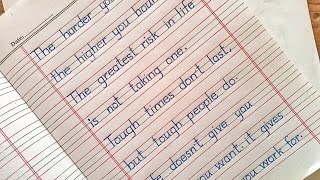 Date:
The harder you
the higher you
The greatest risk in life
is not taking one.
Tough times don't last,
but tough people do.
doesn't give you
you want. it gives
you work for.